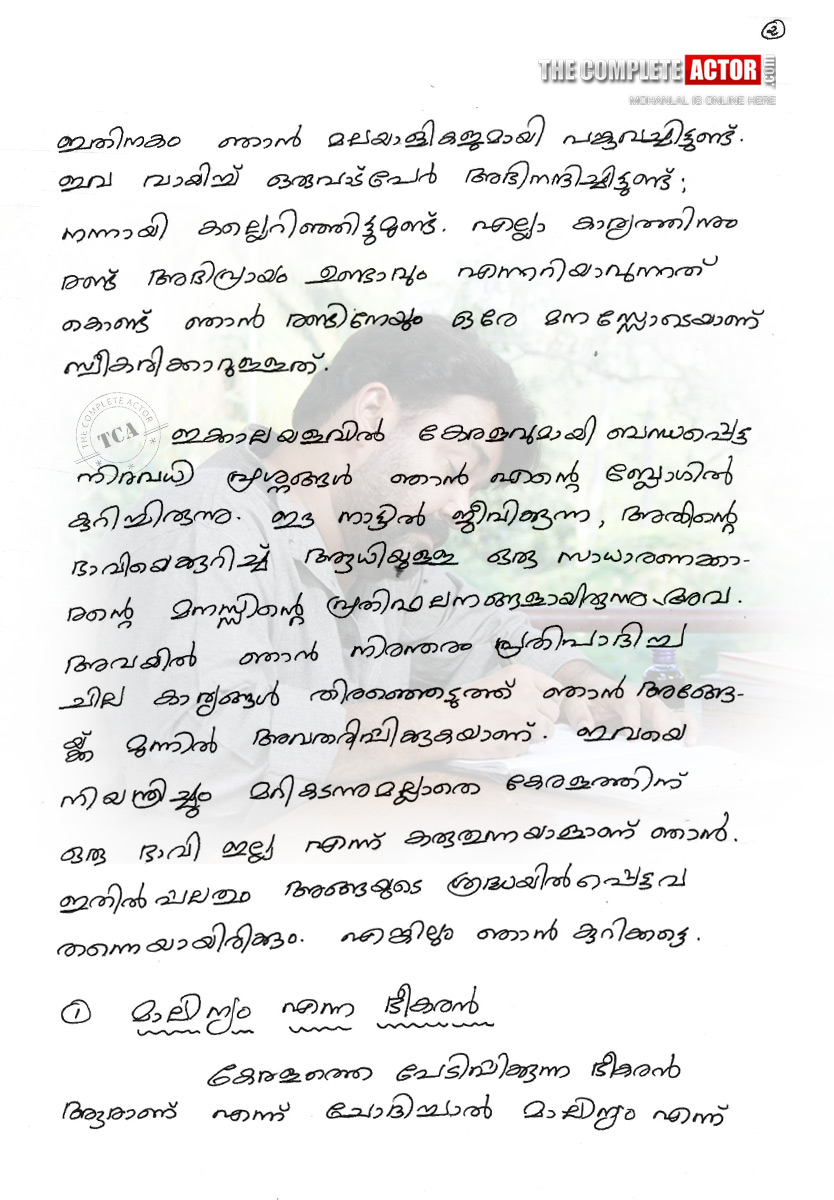 2
THE COMPLETE ACTOR .com
MOHANLAL IS ONLINE HERE
ഇതിനകം ഞാൻ മലയാളികളുമായി പങ്കുവച്ചിട്ടുണ്ട്.
ഇവ വായിച്ച് ഒരുപാട്പേർ അഭിനന്ദിച്ചിട്ടുണ്ട്;
നന്നായി കല്ലെറിഞ്ഞിട്ടുമുണ്ട്. എല്ലാ കാര്യത്തിനും
രണ്ട് അഭിപ്രായം ഉണ്ടാവും എന്നറിയാവുന്നത്
കൊണ്ട് ഞാൻ രണ്ടിനേയും ഒരേ മനസ്സോടെയാണ്
സ്വീകരിക്കാറുള്ളത്.
THE COMPLETE ACTOR
TCA
ഇക്കാലയളവിൽ കേരളവുമായി ബന്ധപ്പെട്ട
നിരവധി പ്രശ്നങ്ങൾ ഞാൻ എന്റെ ബ്ലോഗിൽ
കുറിച്ചിരുന്നു. ഈ നാട്ടിൽ ജീവിക്കുന്ന, അതിന്റെ
ഭാവിയെക്കുറിച്ച് ആധിയുള്ള ഒരു സാധാരണക്കാ-
രന്റെ മനസ്സിന്റെ പ്രതിഫലനങ്ങളായിരുന്നു അവ.
അവയിൽ ഞാൻ നിരന്തരം പ്രതിപാദിച്ച
ചില കാര്യങ്ങൾ തിരഞ്ഞെടുത്ത് ഞാൻ അങ്ങേ-
യ്ക്ക് മുന്നിൽ അവതരിപ്പിക്കുകയാണ്. ഇവയെ
നിയന്ത്രിച്ചും മറികടന്നുമല്ലാതെ കേരളത്തിന്
ഒരു ഭാവി ഇല്ല എന്ന് കരുതുന്നയാളാണ് ഞാൻ.
ഇതിൽ പലതും അങ്ങയുടെ ശ്രദ്ധയിൽപ്പെട്ടവ
തന്നെയായിരിക്കും. എങ്കിലും ഞാൻ കുറിക്കട്ടെ.
1 മാലിന്യം എന്ന ഭീകരൻ
കേരളത്തെ പേടിപ്പിക്കുന്ന ഭീകരൻ
ആരാണ് എന്ന് ചോദിച്ചാൽ മാലിന്യം എന്ന്